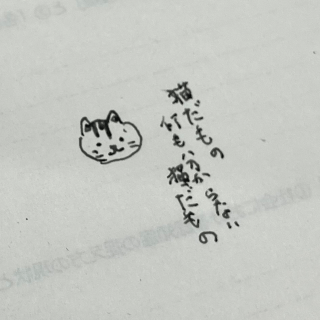 猫だもの
何も分からない
猫だもの